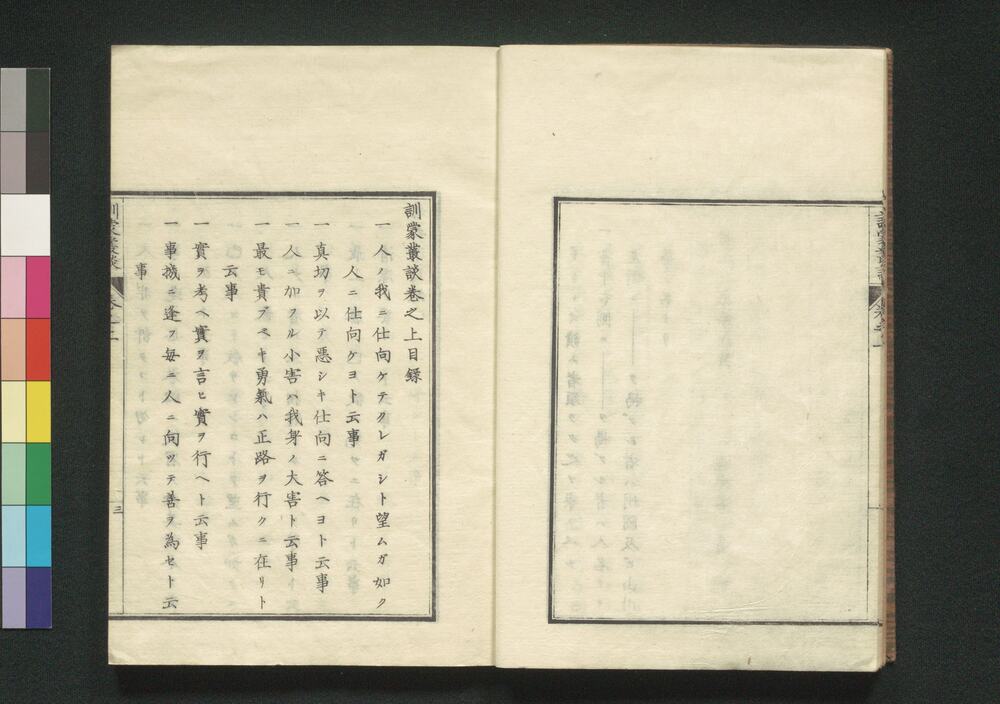 訓蒙叢談巻之上目録
一 人ノ我ニ仕向ケテクレガシト望ムガ如ク
人ニ仕向ケヨト云事
一 真切ヲ以テ悪シキ仕向ニ答ヘヨト云事
一 人ニ加フル小害ハ我身ノ大害ト云事
一 最モ貴ブベキ勇氣ハ正路ヲ行クニ在リト
云事
一 實ヲ考ヘ實ヲ言ヒ實ヲ行ヘト云事
一 事機ニ逢フ毎ニ人ニ向ツテ善ヲ為セト云
事
訓蒙叢談
三